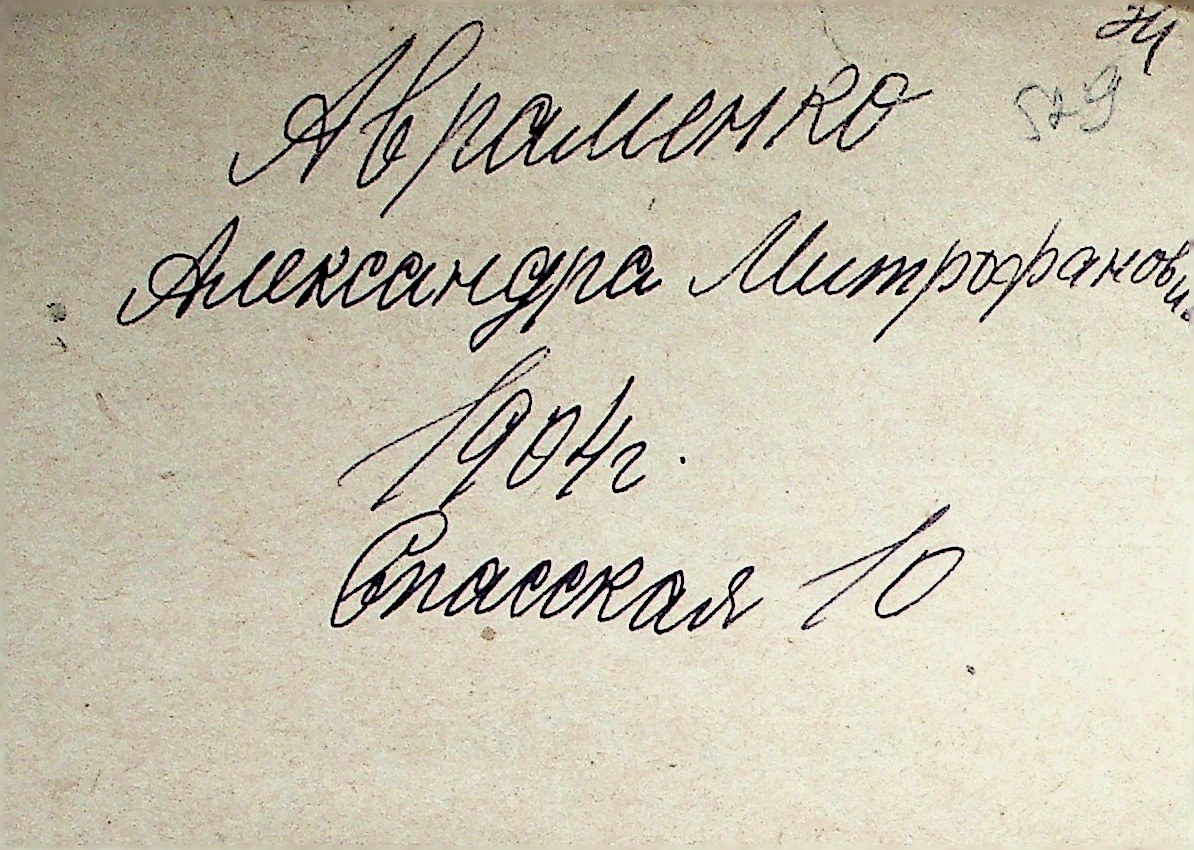 Авраменко
Александра Митрофанови.
1904г.
Спасская 10